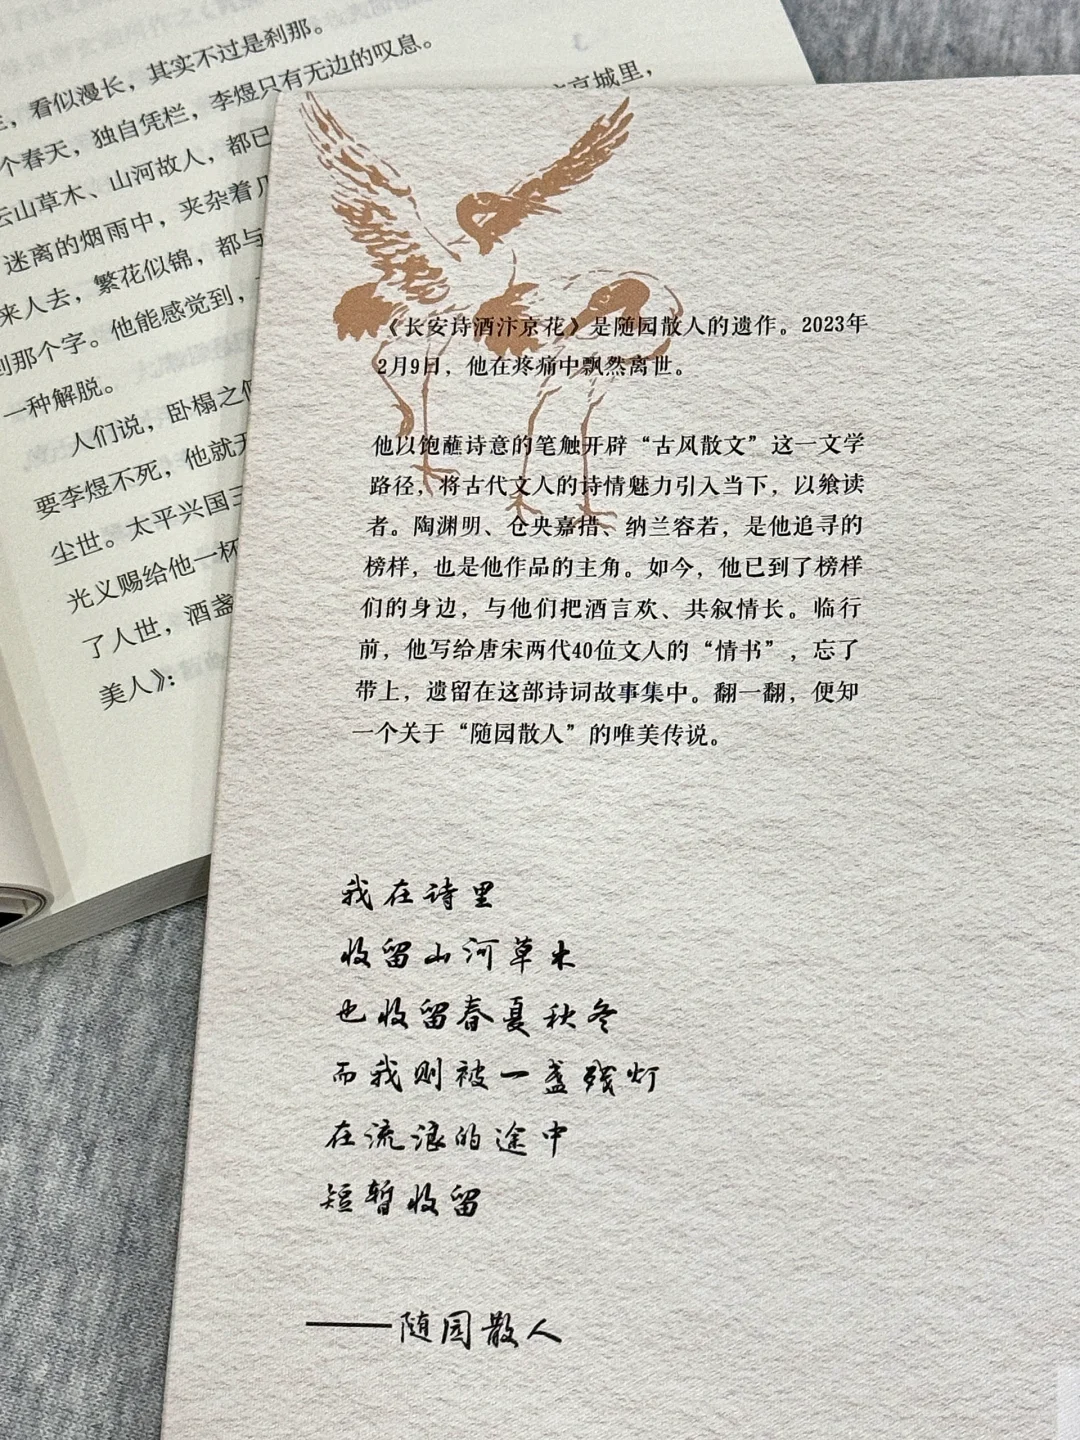 ，看似漫长，其实不过是刹那。
个春天，独自凭栏，李煜只有无边的叹息。
京城里，
云山草木、山河故人，都已
迷离的烟雨中，夹杂着几
来人去，繁花似锦，都与
到那个字。他能感觉到，
一种解脱。
人们说，卧榻之侧
要李煜不死，他就无
尘世。太平兴国三
光义赐给他一杯
了人世，酒盏
美人》：
《长安诗酒汴京花》是随园散人的遗作。2023年
2月9日，他在疼痛中飘然离世。
他以饱蘸诗意的笔触开辟“古风散文”这一文学
路径，将古代文人的诗情魅力引入当下，以飨读
者。陶渊明、仓央嘉措、纳兰容若，是他追寻的
榜样，也是他作品的主角。如今，他已到了榜样
们的身边，与他们把酒言欢、共叙情长。临行
前，他写给唐宋两代40位文人的“情书”，忘了
带上，遗留在这部诗词故事集中。翻一翻，便知
一个关于“随园散人”的唯美传说。
我在诗里
收留山河草木
也收留春夏秋冬
而我则被一盏残灯
在流浪的途中
短暂收留
——随园散人